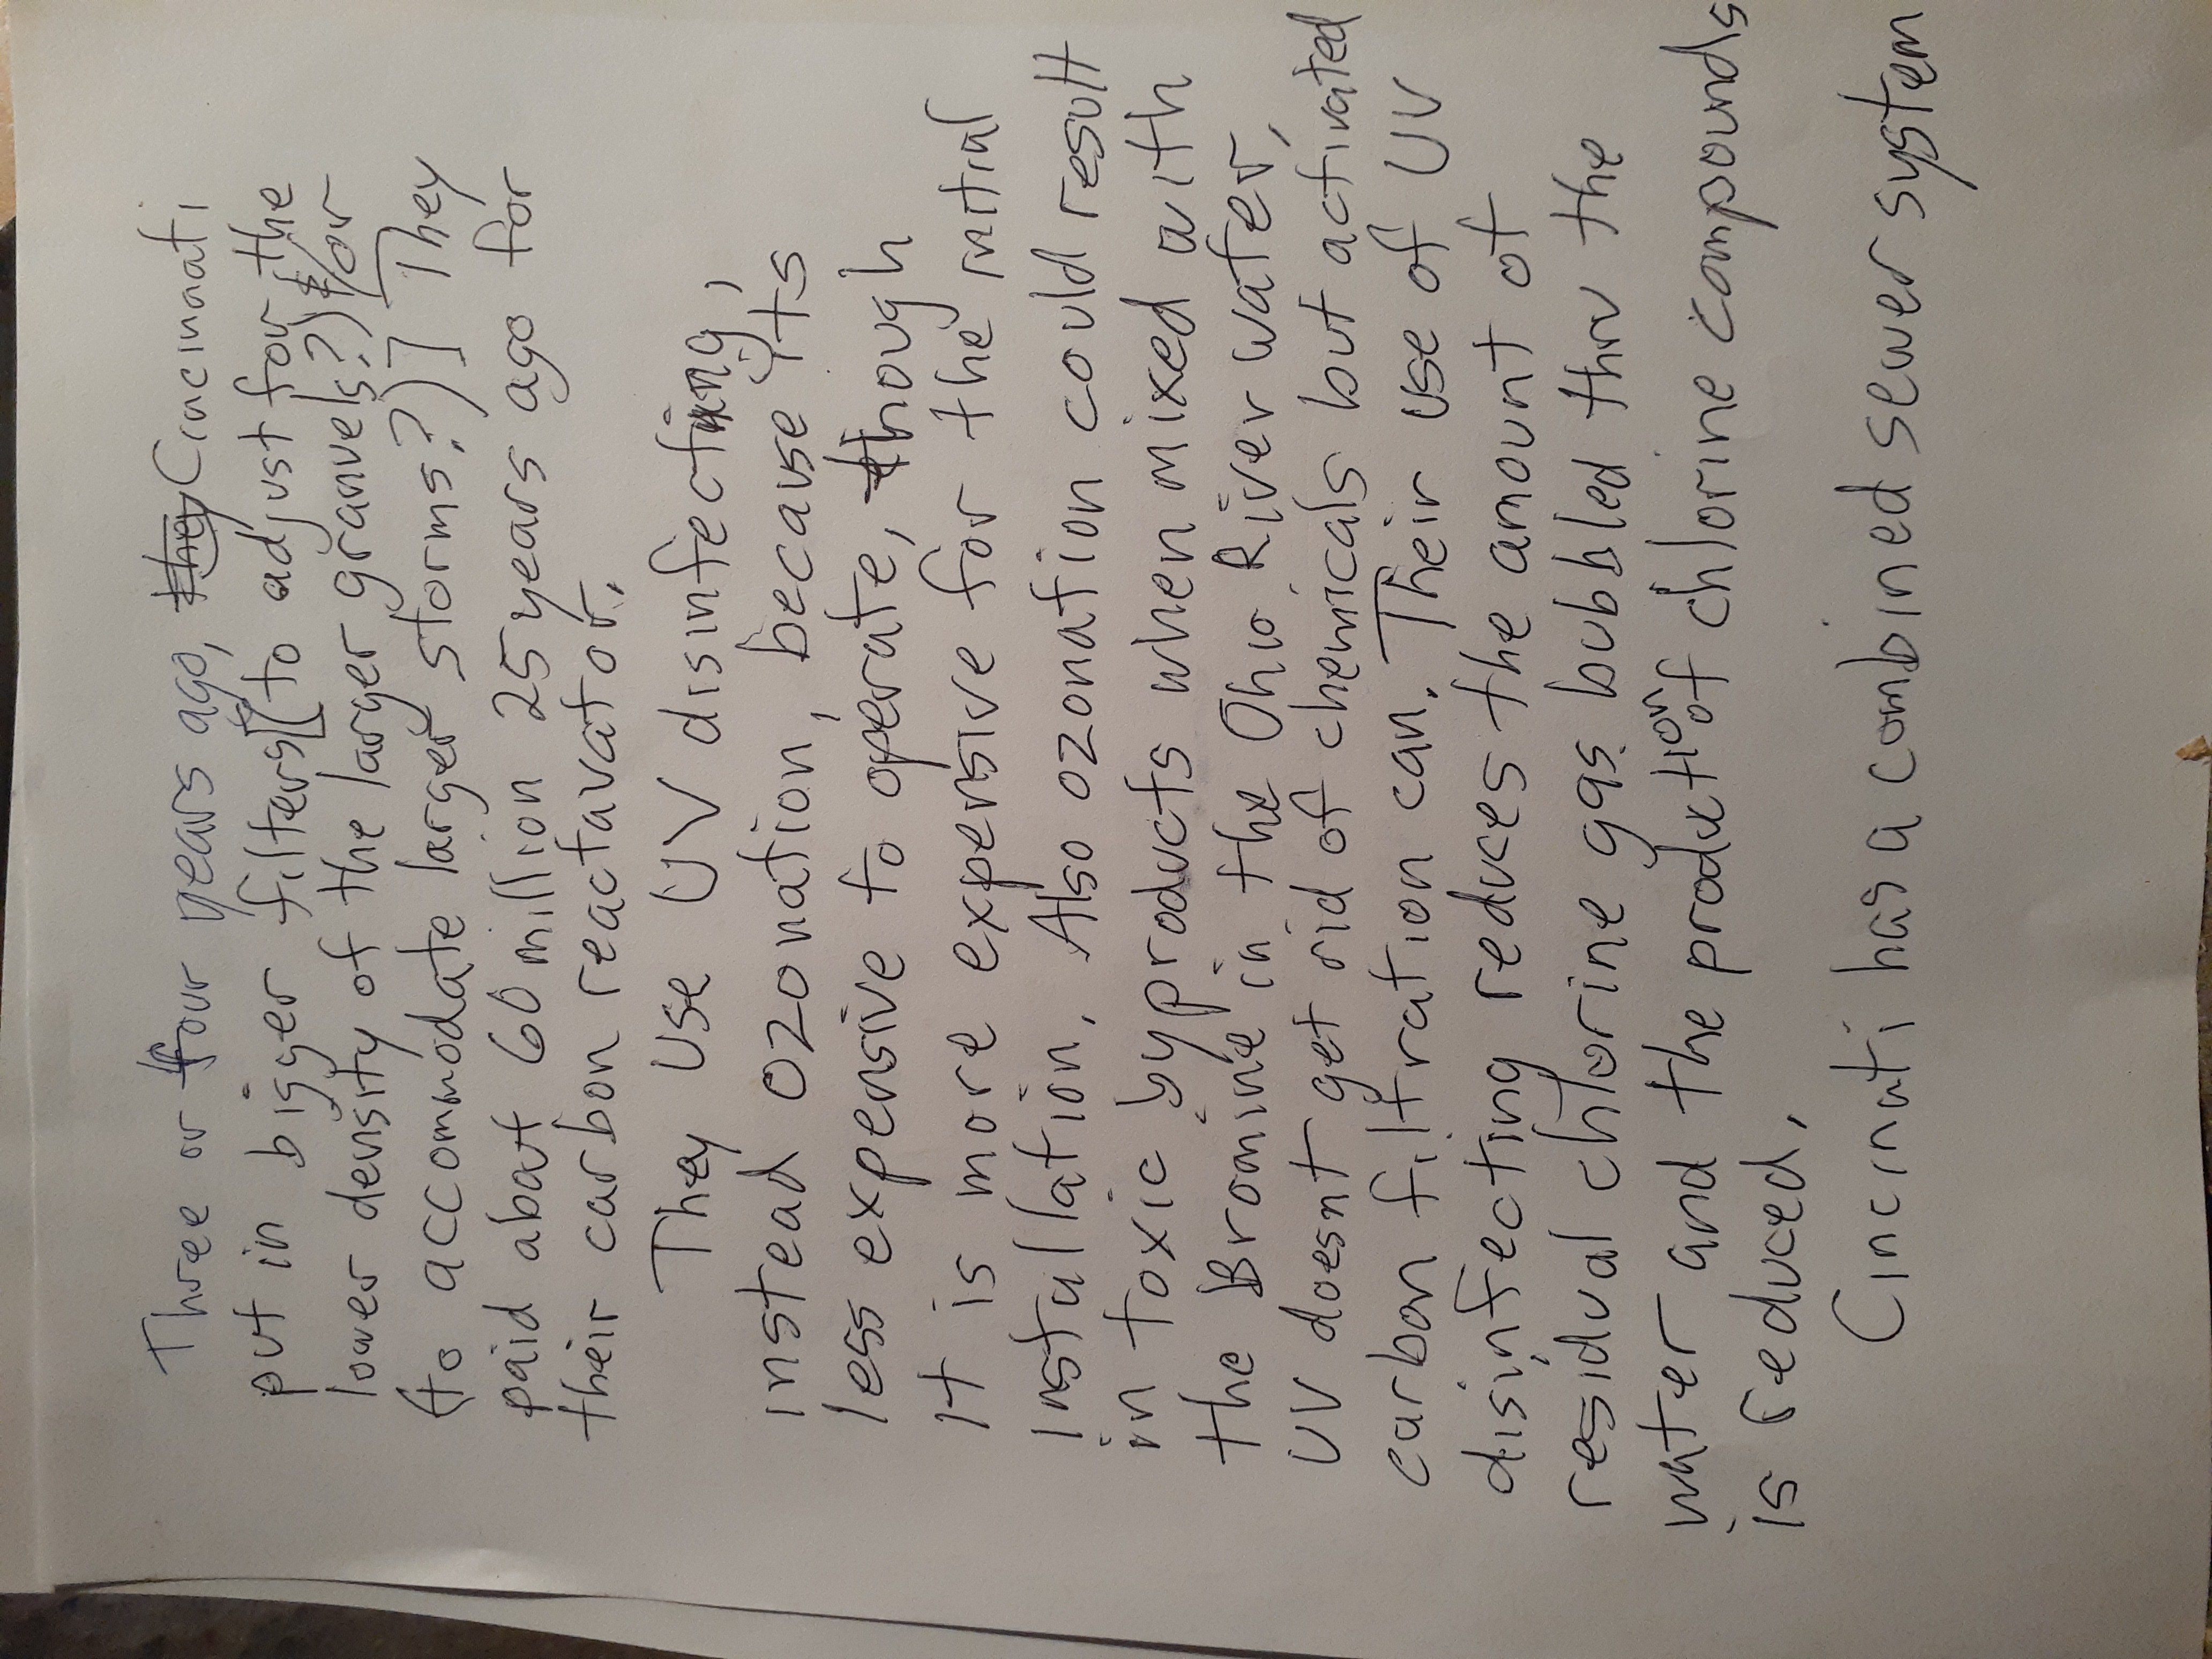 Three or four years ago, they Cincinati
put in bigger filters [(to adjust for the
lower density of the larger granvels?) for
(to accommodate larger storms?)] They
paid about 60 million 25 years ago for
their carbon reactavator.
They use UV disinfecting,
instead ozonation, because it's
less expensive to operate, though
it is more expensive for the initial
installation. Also ozonation could result
in toxic byproducts when mixed with
the Bromine in the Ohio River water,
UV doesnt get rid of chemicals but activated
carbon filtration can. Their use of UV
disinfecting reduces the amount of
residual chlorine gas bubbled thru the
water and the production of chlorine compounds
is reduced.
Cincinati has a combined sewer system